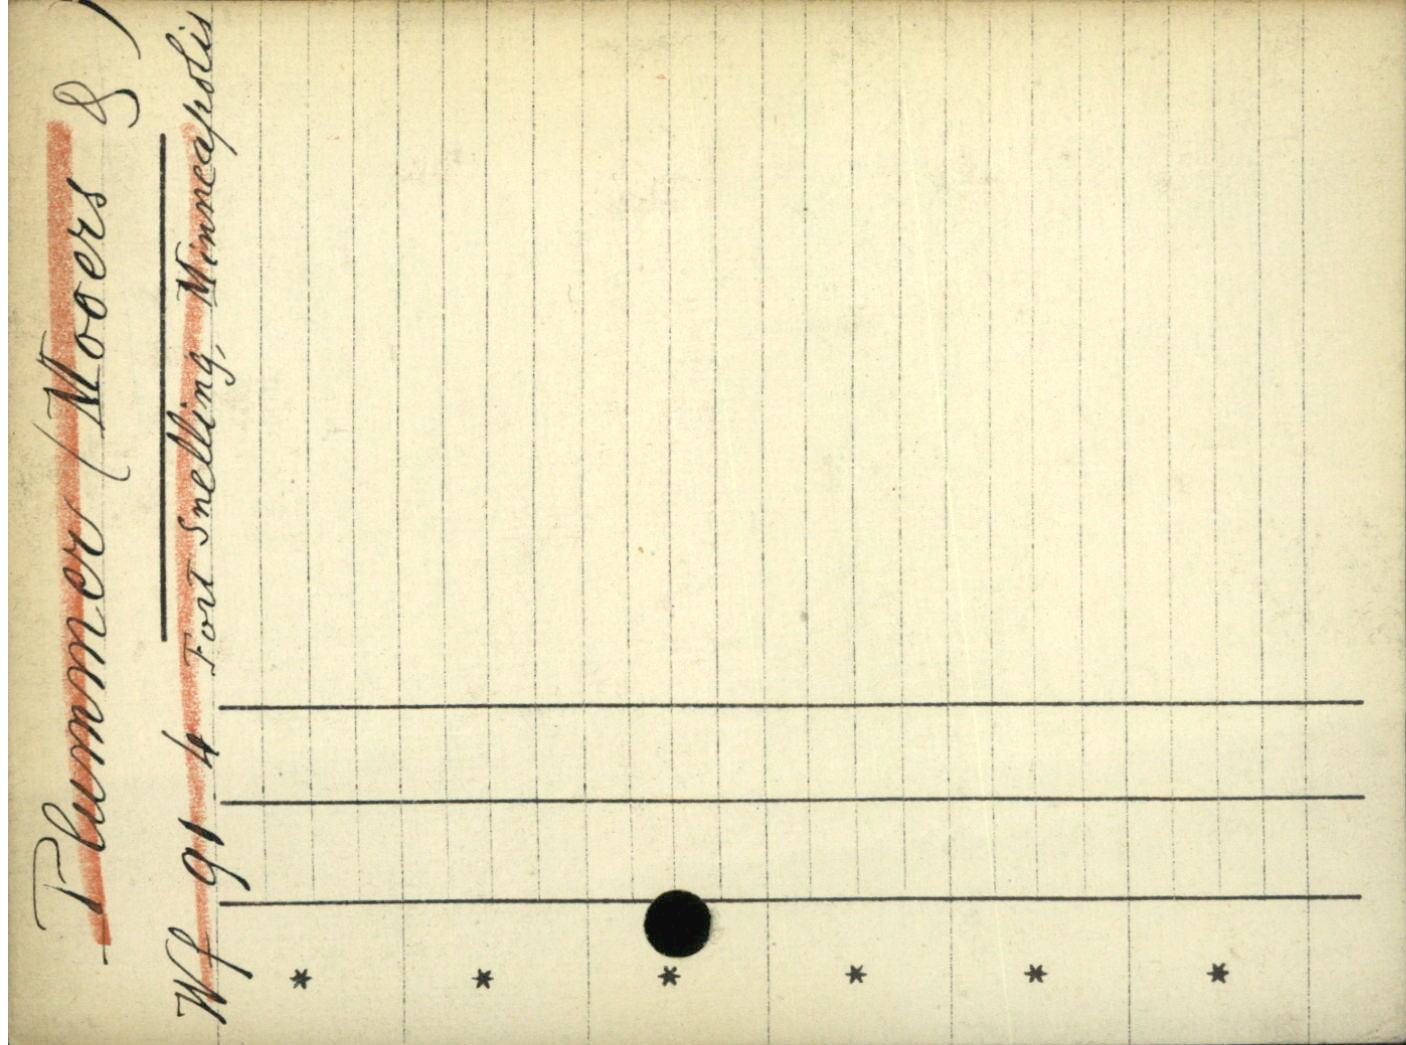 Plummer (Mooers & )
Wf 91 4 Fort Snelling, Minneapolis
*
*
*
*
*
*